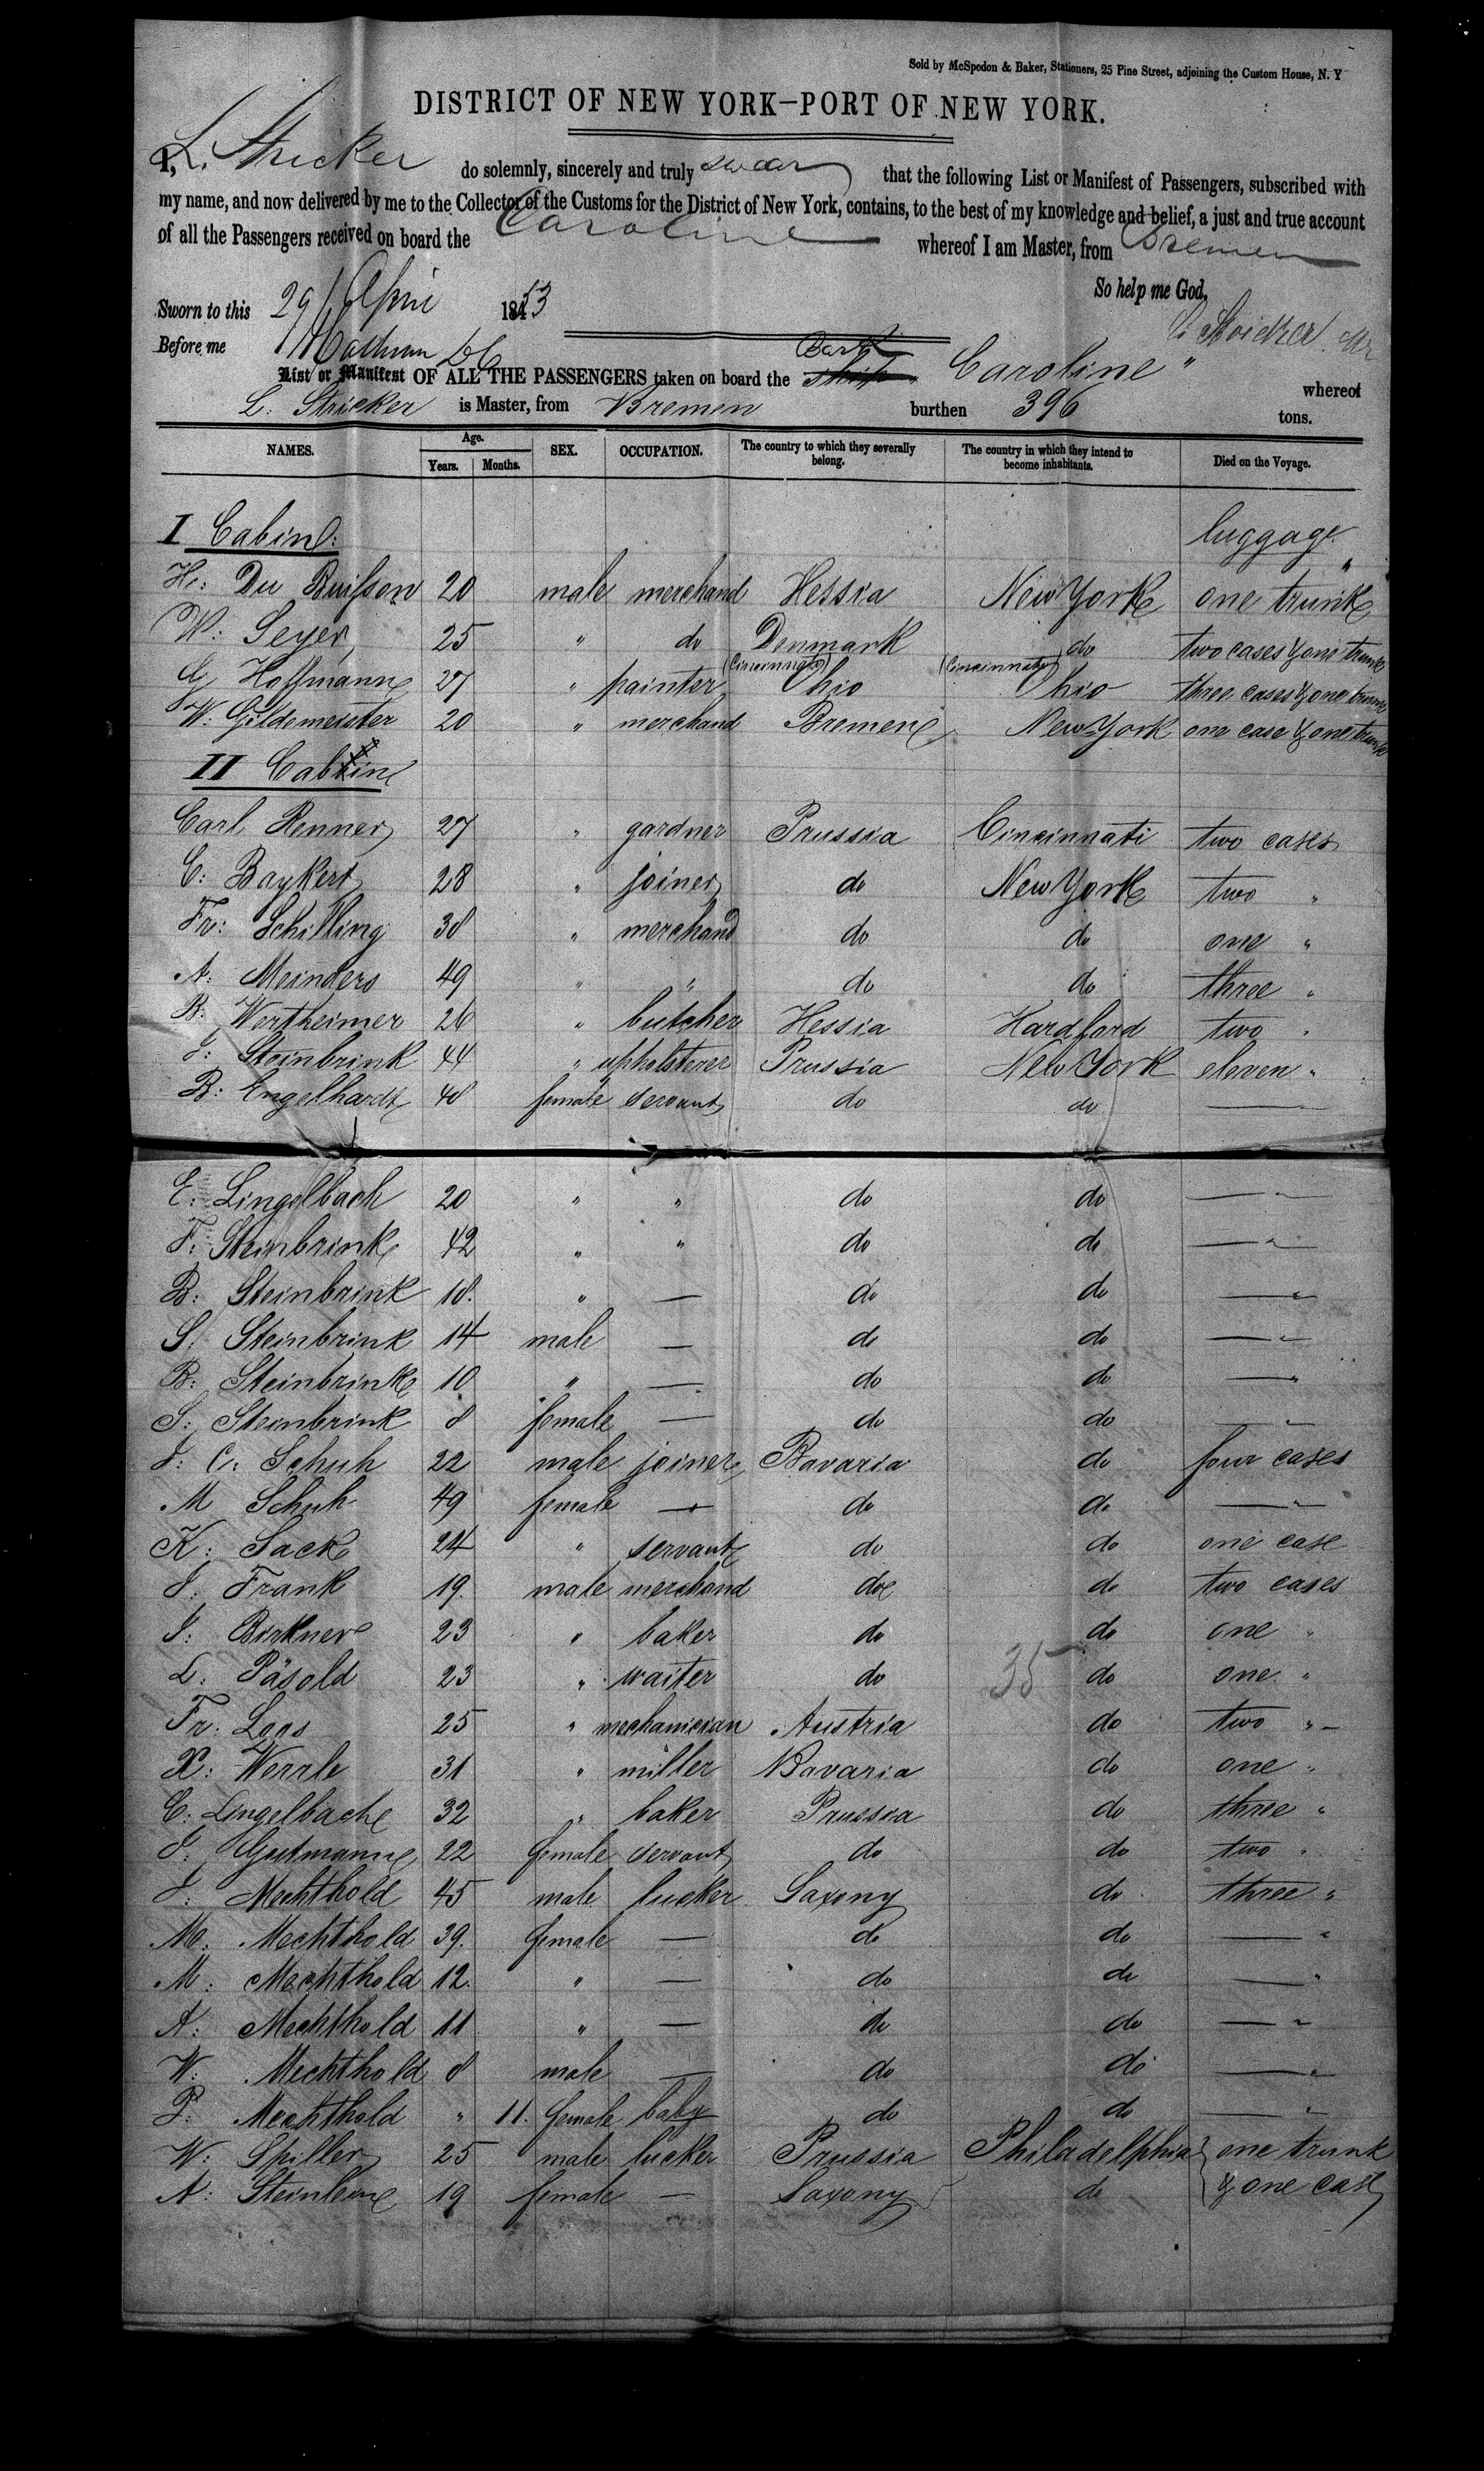 Sold by McSpedon & Baker, Stationers, 25 Pine Street, adjoining the Custom House, N. Y
DISTRICT OF NEW YORK—PORT OF NEW YORK.
I, L. Stricker do solemnly, sincerely and truly swear that the following List or Manifest of Passengers, subscribed with
my name, and now delivered by me to the Collector of the Customs for the District of New York, contains, to the best of my knowledge and belief, a just and true account
of all the Passengers received on board the Caroline whereof I am Master, from Bremen
So help me God.
Sworn to this 29 April 1853
L. Stricker
Before me
List or Manifest OF ALL THE PASSENGERS taken on board the Bark ship Caroline" whereof
L: Stricker is Master, from Bremen burthen 396 tons.
NAMES. Age. Years. Months. SEX. OCCUPATION. The country to which they severally belong. The country in which they intend to become inhabitants. Died on the Voyage.
I Cabine: luggage
H: Du Buisson 20 male merchand Hessia New York one trunk
W: Seyer 25 " do Denmark do two cases & one trunk
G Hoffmann 27 " painter (Cincinnati) Ohio (Cincinnati) Ohio three cases & one trunk
W: Gildemeister 20 " merchand Bremen New York one case & one trunk
II Cabine
Carl Renner 27 " gardner Prussia Cincinnati two cases
C: Baykert 28 " joiner do New York two "
Fr: Schilling 38 " merchand do do one "
A: Meinders 49 " " do do three "
B: Wertheimer 26 " butcher Hessia Hardford two "
J: Steinbrink 44 " upholsterer Prussia New York eleven "
B: Engelhardt 48 female servant do do —
E: Lingelbach 20 " " do do — "
F: Steinbrink 42 " " do do — "
B: Steinbrink 18. " — do do — "
S: Steinbrink 14 male — do do — "
B: Steinbrink 10 " — do do — "
S: Steinbrink 8 female — do do — "
J: C: Schuh 22 male joiner Bavaria do four cases
M Schuh 49 female — do do — "
K: Sack 24 " servant do do one case
J: Frank 19. male merchand do do two cases
J: Birkner 23 " baker do do one "
L: Päsold 23 " waiter do 35 do one "
Fr: Loos 25 " mechanician Austria do two " –
X: Werrle 31 " miller Bavaria do one "
C: Lingelbach 32 " baker Prussia do three "
J: Gutmann 22 female servant do do two "
J: Mechthold 45 male lucker Saxony do three "
M: Mechthold 39. female — do do — "
M: Mechthold 12. " — do do — "
A: Mechthold 11 " — do do — "
W: Mechthold 8 male — do do — "
P: Mechthold " 11. female baby do do — "
W: Spiller 25 male lucker Prussia Philadelphia one trunk
A: Steinlein 19 female — Saxony do & one case